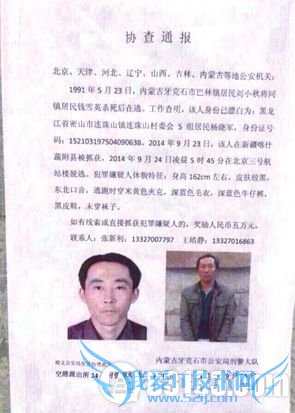 协查通报
北京、天津、河北、辽宁、山西、吉林、内蒙古等地公安机关：
1991年5月23日，内蒙古牙克石市巴林镇居民刘小秋将同
镇居民钱雪英杀死后在逃。工作查明，该人身份已漂白为：黑龙
江省密山市连珠山镇连珠山村委会5组居民杨晓军，身份证号
码：152103197504090638。2014年9月23日，该人在新疆喀什
疏附县被抓获。2014年9月24日凌晨5时45分在北京三号航
站楼脱逃。犯罪嫌疑人体貌特征：身高162cm左右，皮肤较黑，
东北口音，逃跑时穿米黄色夹克，深蓝色毛衣，深蓝色牛仔裤，
黑皮鞋，未穿袜子。
如有线索或直接抓获犯罪嫌疑人的，奖励人民币五万元。
联系人：张新利：13327007797 王皓静：13327016863
内蒙古牙克石市公安局刑警大队
空港派出所